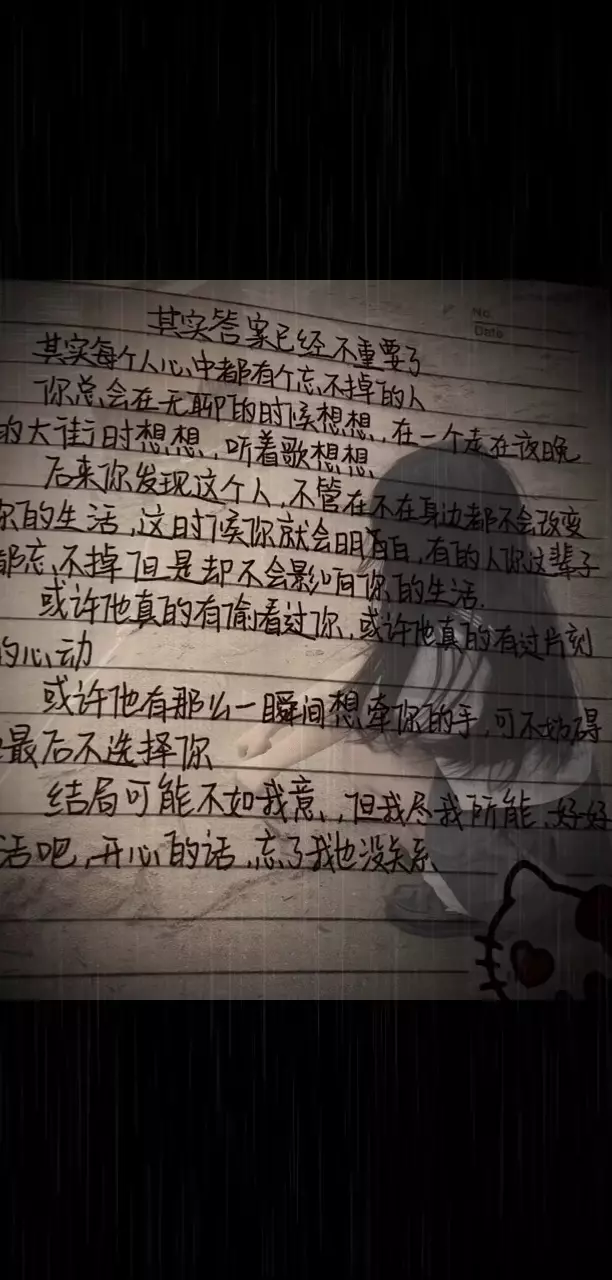 No.
Date
其实答案已经不重要了
其实每个人心中都有个忘不掉的人
你总会在无聊的时候想想,在一个走在夜晚
的大街时想想,听着歌想想
后来你发现这个人,不管在不在身边都不会改变
你的生活,这时候你就会明白白,有的人你这辈子
都忘不掉但是却不会影响你的生活.
或许他真的有偷看过你,或许他真的有过片刻
的心动
或许他有那么一瞬间想牵你的手,可不妨碍
最后不选择你
结局可能不如我意,,但我尽我所能,好好
活吧,开心的话,忘了我也没关系